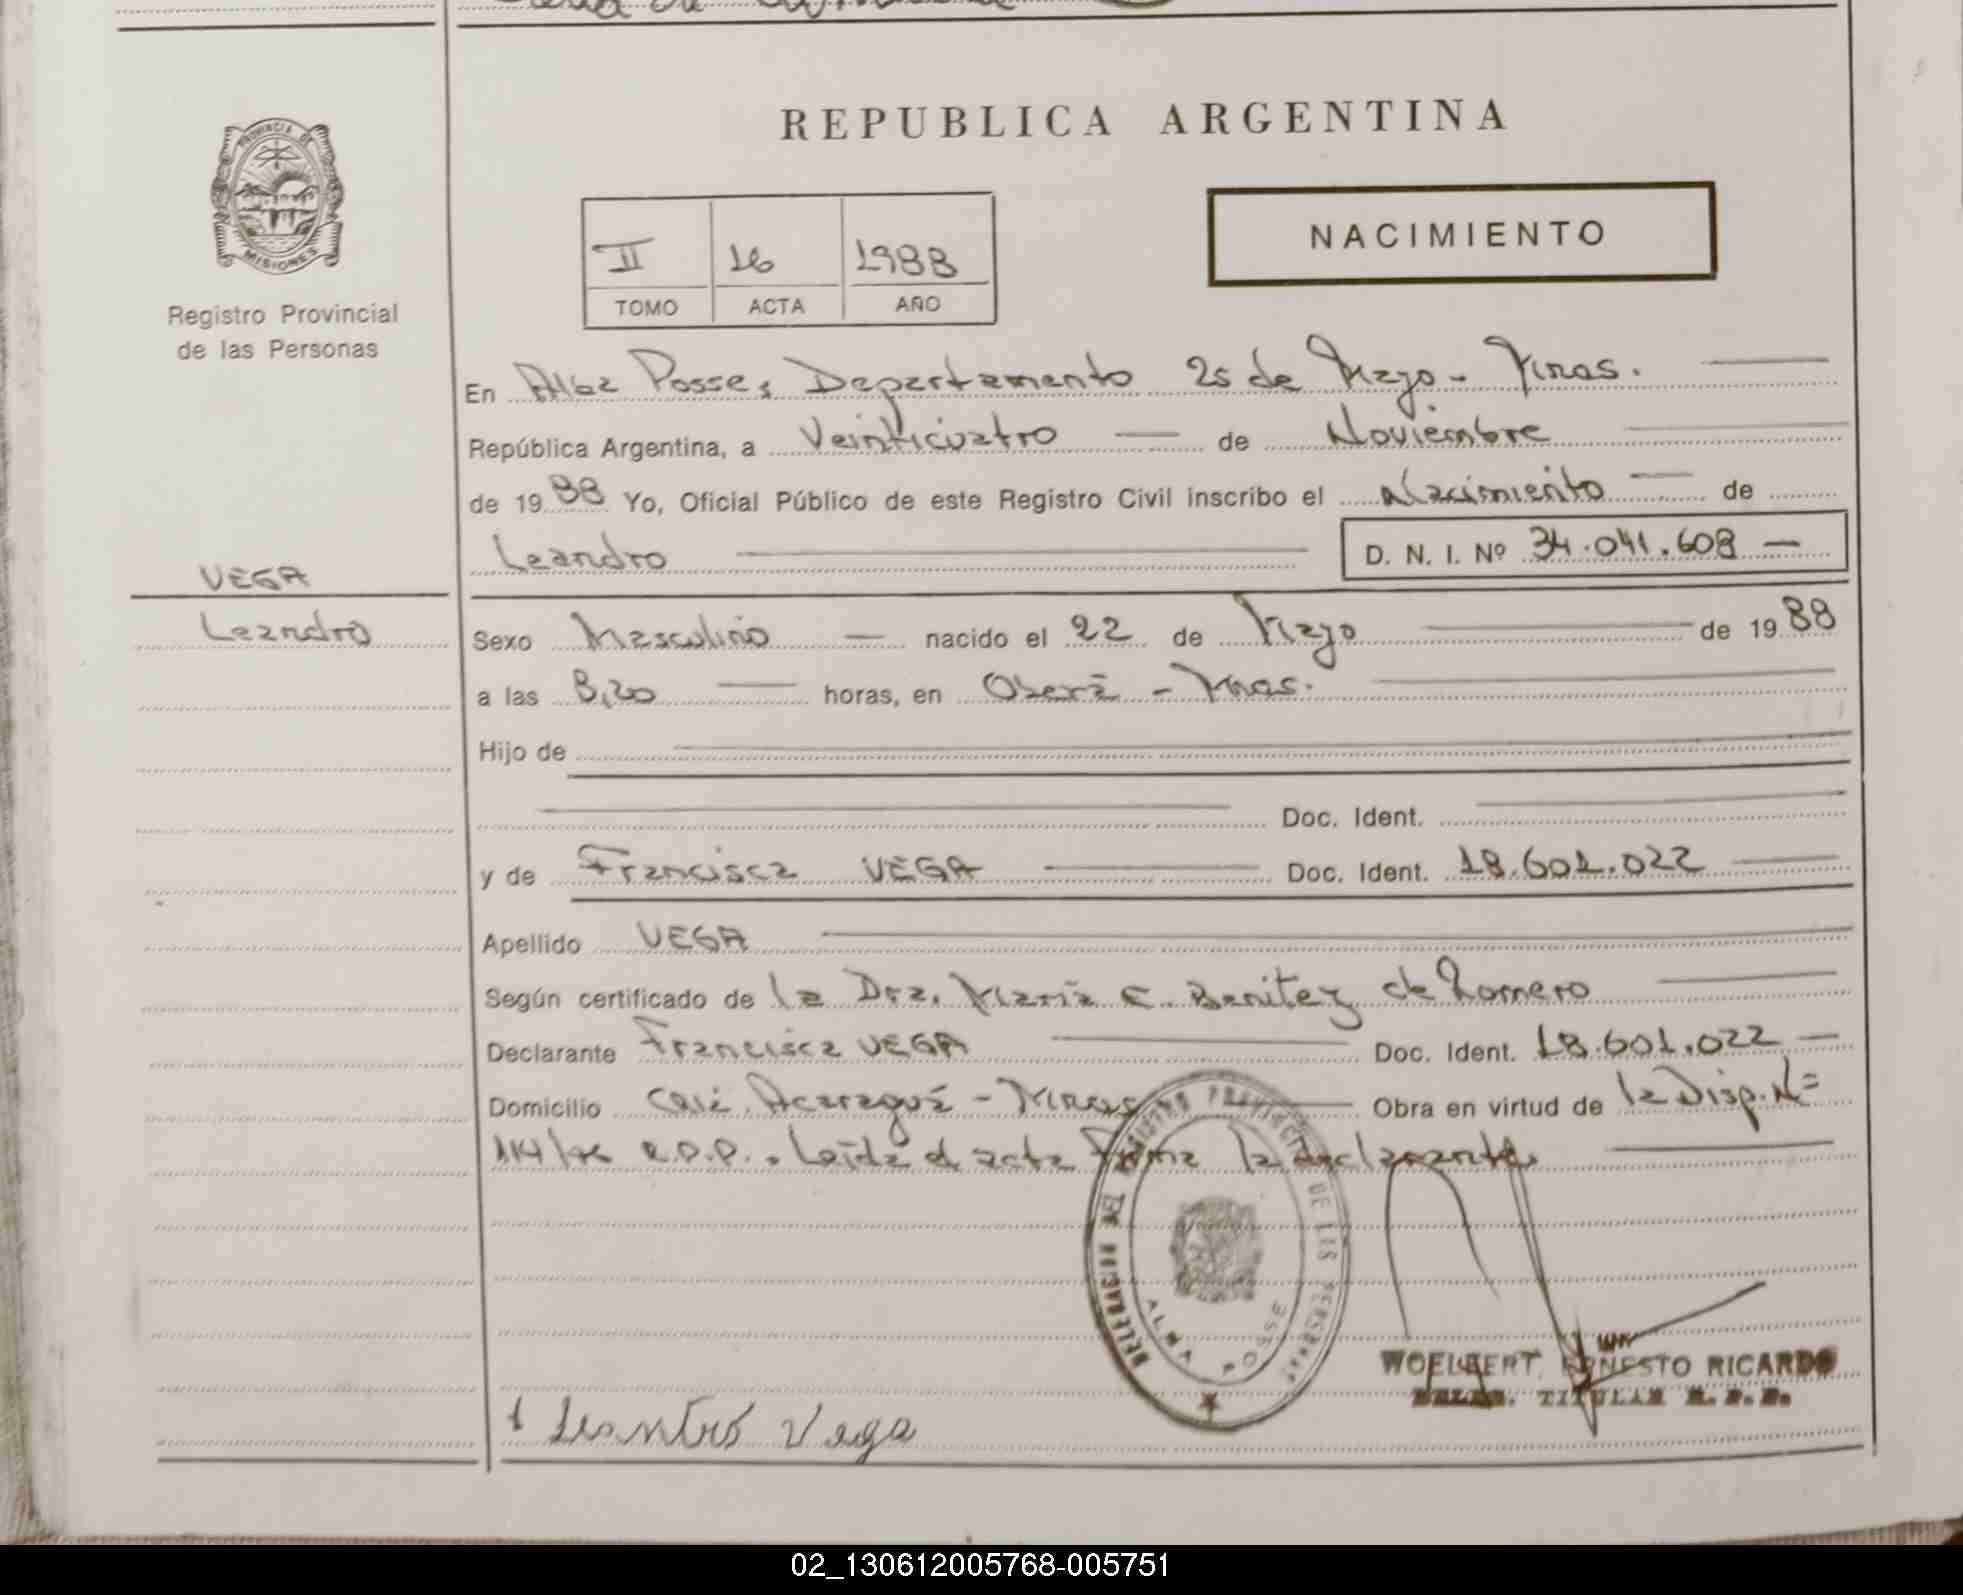 REPUBLICA ARGENTINA
PROVINCIA DE
MISIONES
Registro Provincial
de las Personas
II 16 1988
TOMO ACTA AÑO
NACIMIENTO
En Alba Posse, Departamento 25 de Mayo - Mnes.
República Argentina, a Veinticuatro — de Noviembre
de 1988 Yo, Oficial Público de este Registro Civil inscribo el Nacimiento — de
Leandro D. N. I. Nº 34.041.608 —
VEGA
Leandro
Sexo Masculino — nacido el 22 de Mayo de 1988
a las 8,20 — horas, en Oberá - Mnes.
Hijo de
Doc. Ident.
y de Francisca VEGA Doc. Ident. 18.601.022
Apellido VEGA
Según certificado de la Dra. María C. Benitez de Romero
Declarante Francisca VEGA Doc. Ident. 18.601.022 —
Domicilio Acaraguá - Mnes Obra en virtud de la Disp. Nº
114/76 R.P.P. . Leída el acta Firma la declarante.
DELEGACION DEL REGISTRO PROVINCIAL DE LAS PERSONAS
ALBA POSSE
WOELBERT, ERNESTO RICARDO
DELEG. TITULAR R. P. P.
Vega
02_130612005768-005751